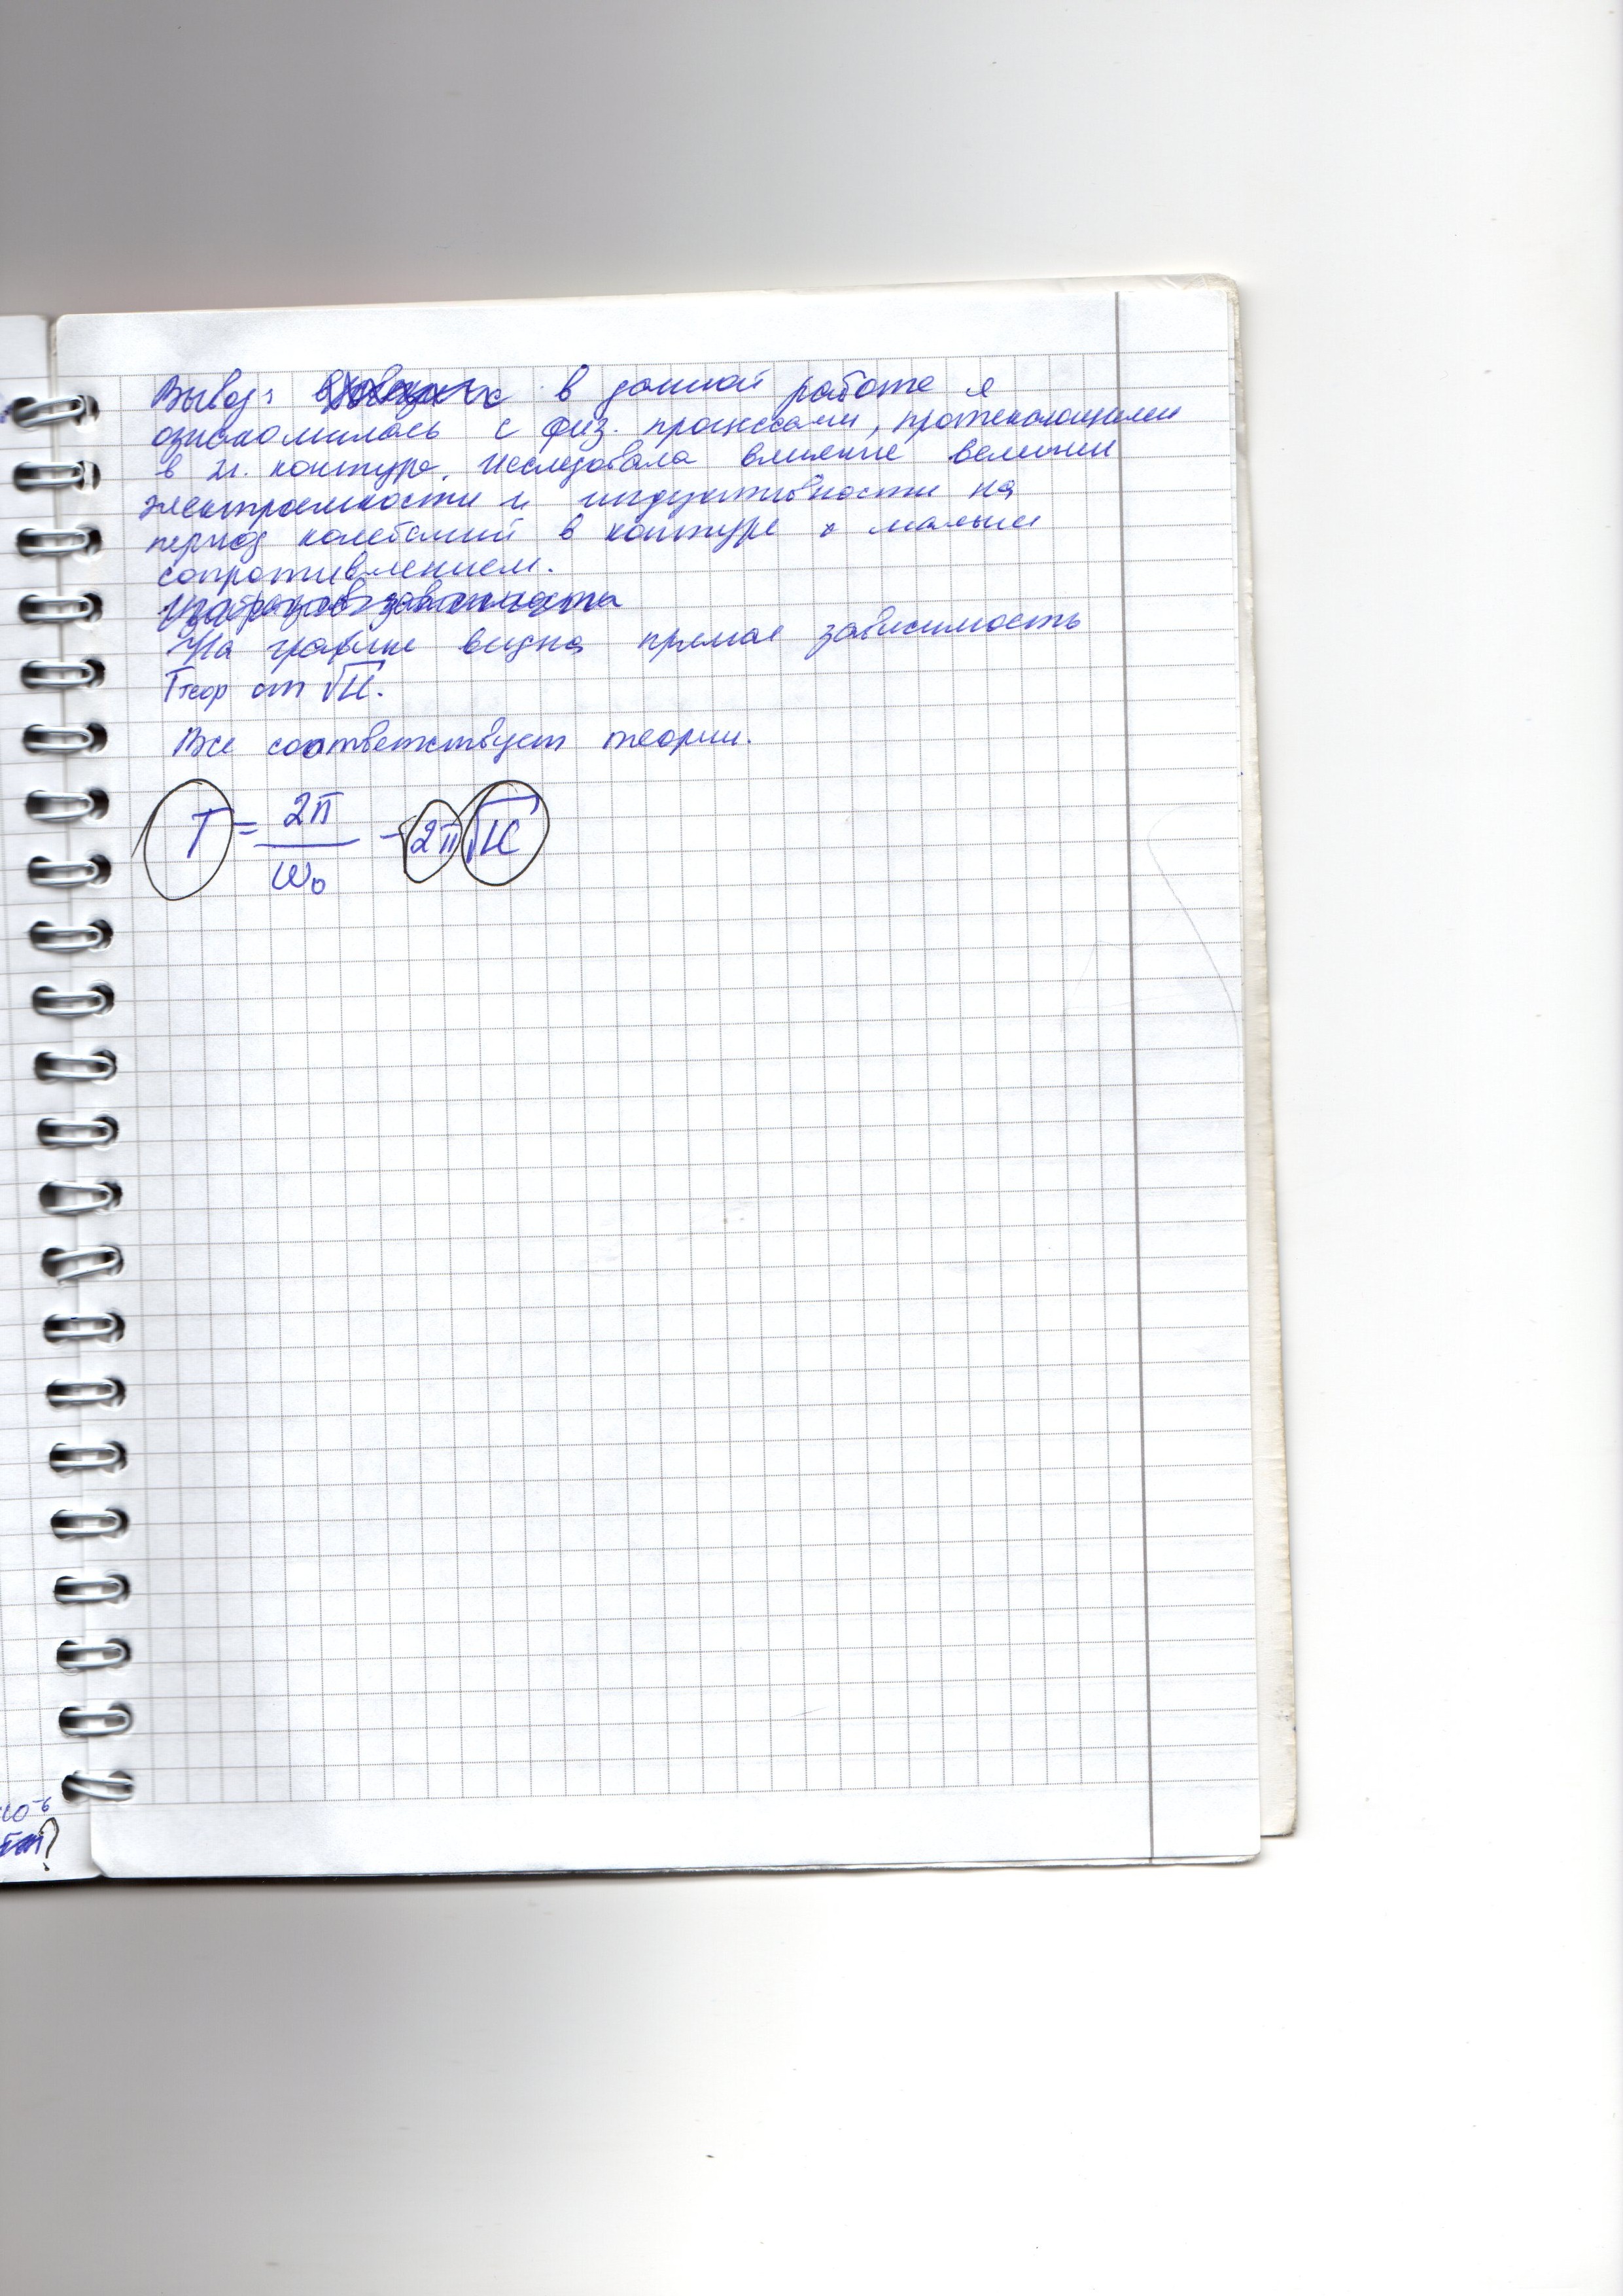 Вывод: в данной работе я
ознакомилась с физ. процессами, протекающими
в эл. контуре. Исследовала влияние величин
электроемкости и индуктивности на
период колебаний в контуре с малым
сопротивлением.
На графике видна прямая зависимость
Tтеор от √LC.
Все соответствует теории.
T = 2π / ω₀ = 2π √LC
10⁻⁶
?